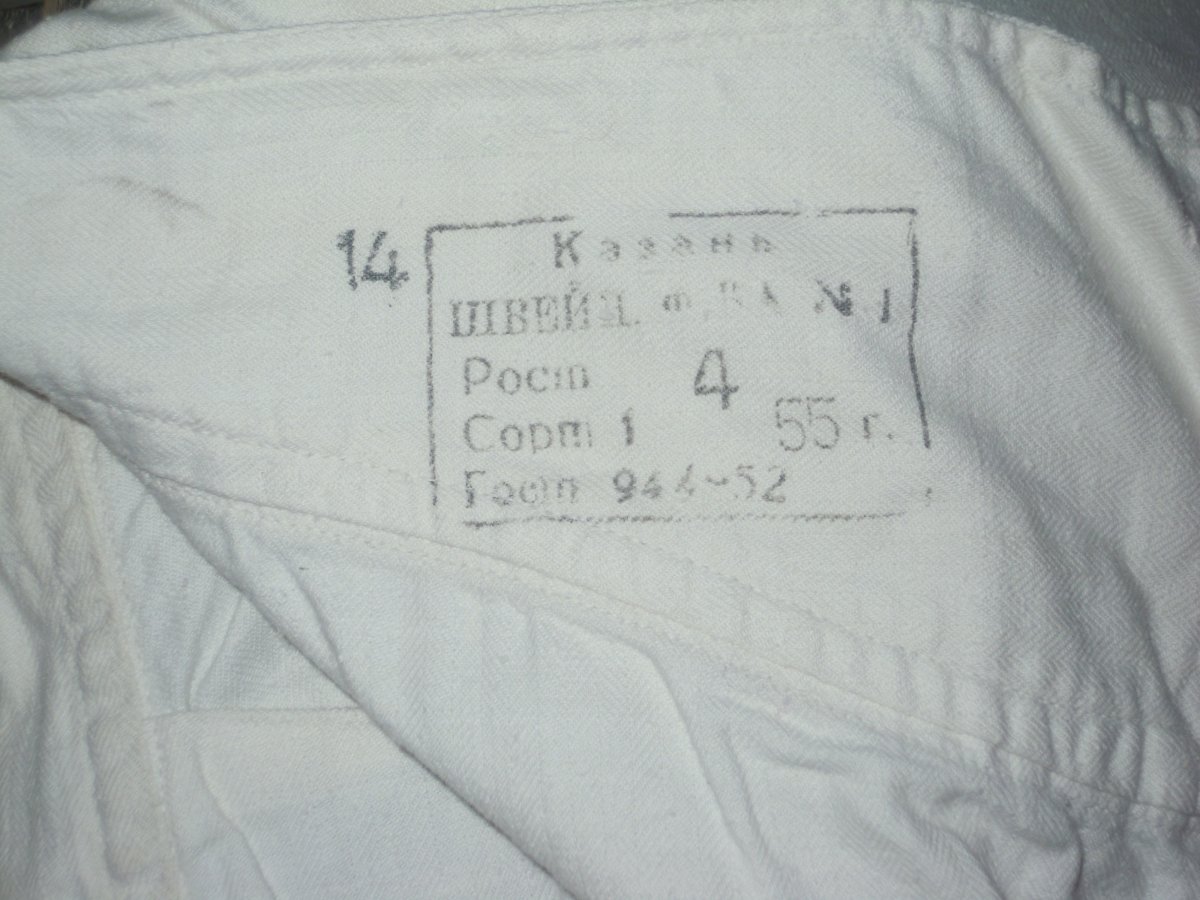 14
Казань
ШВЕЙН. Ф-КА № 1
Рост 4
Сорт 1 55 г.
Гост 944-52